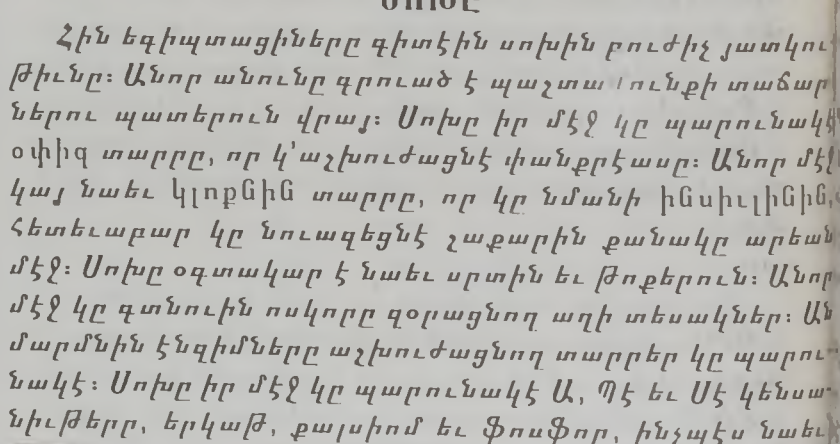 ՍՈԽԸ
Հին եգիպտացիները գիտէին սոխին բուժիչ յատկու-
թիւնը: Անոր անունը գրուած է պաշտամունքի տաճար
ներու պատերուն վրայ: Սոխը իր մէջ կը պարունակէ
օփիզ տարրը, որ կ՚աշխուժացնէ փանքրէասը: Անոր մէջ
կայ նաեւ կլոքնին տարրը, որ կը նմանի ինսիւլինին,
հետեւաբար կը նուազեցնէ շաքարին քանակը արեան
մէջ: Սոխը օգտակար է նաեւ սրտին եւ թոքերուն: Անոր
մէջ կը գտնուին ոսկորը զօրացնող աղի տեսակներ: Ան
մարմնին էնզիմները աշխուժացնող տարրեր կը պարու-
նակէ: Սոխը իր մէջ կը պարունակէ Ա, Պէ եւ Սէ կենսա-
նիւթերը, երկաթ, քալսիոմ եւ ֆոսֆոր, ինչպէս նաեւ